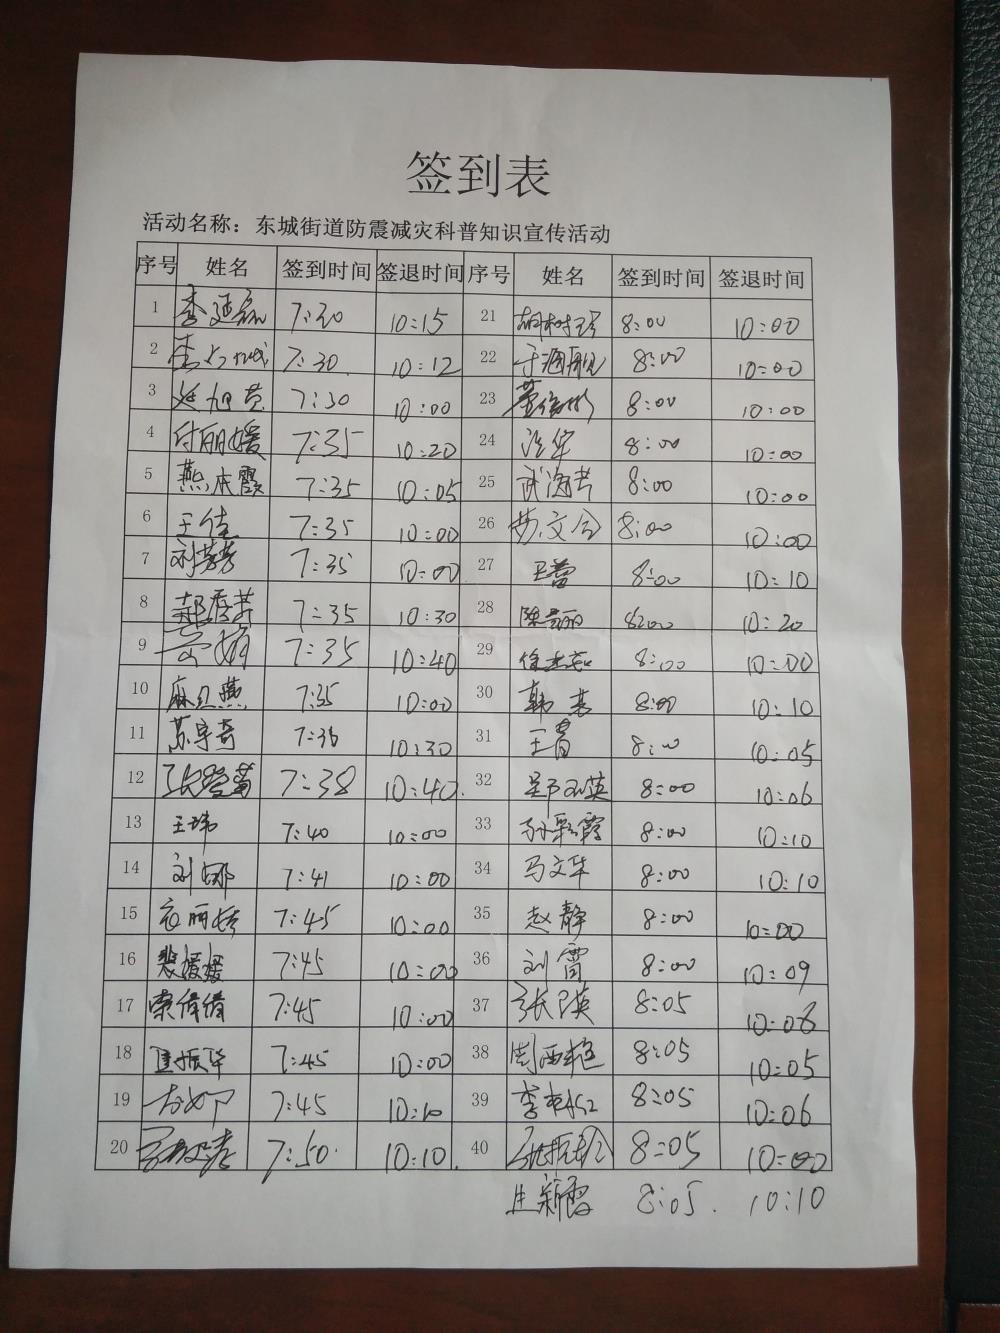 签到表
活动名称：东城街道防震减灾科普知识宣传活动
序号 姓名 签到时间 签退时间 序号 姓名 签到时间 签退时间
1 李延磊 7:30 10:15 21 8:00 10:00
2 7:30 10:12 22 8:00 10:00
3 7:30 10:00 23 8:00 10:00
4 付丽媛 7:35 10:20 24 8:00 10:00
5 燕庆霞 7:35 10:05 25 武海芳 8:00 10:00
6 王佳 7:35 10:00 26 8:00 10:00
7 刘芳芳 7:35 10:00 27 王蕾 8:00 10:10
8 7:35 10:30 28 8:00 10:20
9 7:35 10:40 29 8:00 10:00
10 麻红燕 7:35 10:00 30 韩 8:00 10:10
11 苏宇奇 7:36 10:30 31 8:00 10:05
12 7:38 10:40 32 8:00 10:06
13 王玮 7:40 10:00 33 孙彩霞 8:00 10:10
14 刘娜 7:41 10:00 34 马文华 8:00 10:10
15 7:45 10:00 35 赵静 8:00 10:00
16 裴媛媛 7:45 10:00 36 刘雷 8:00 10:09
17 索倩倩 7:45 10:00 37 8:05 10:08
18 7:45 10:00 38 8:05 10:05
19 7:45 10:10 39 8:05 10:06
20 7:50 10:10 40 8:05 10:00
8:05 10:10